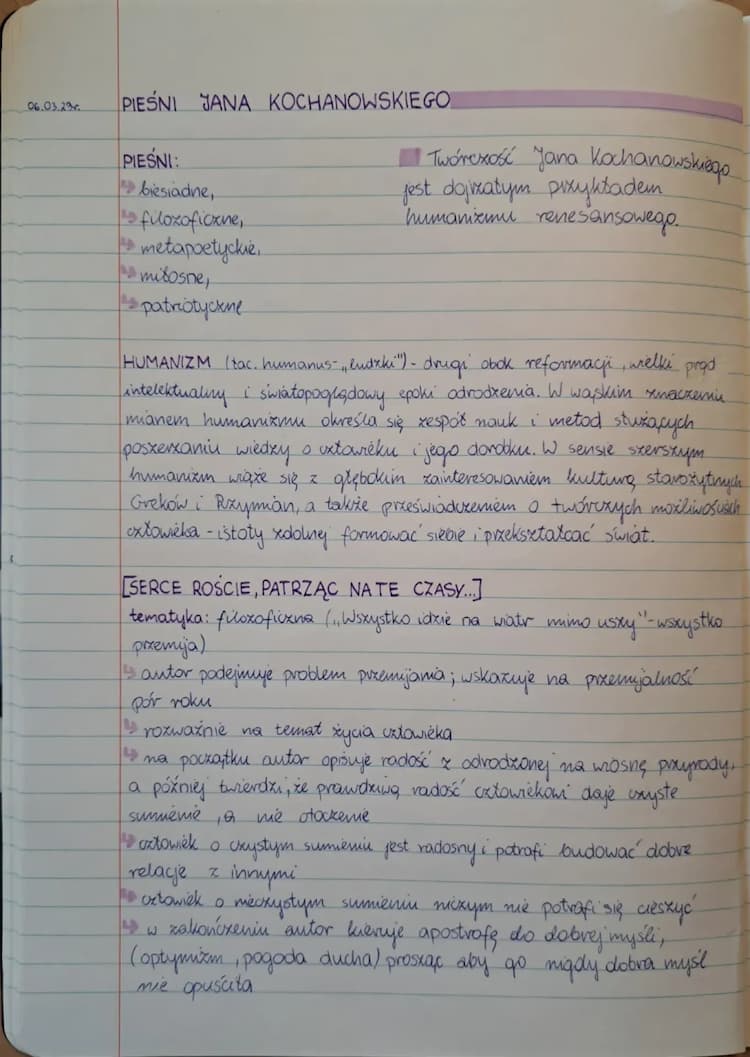 06.03.23r.
PIEŚNI JANA KOCHANOWSKIEGO
PIEŚNI:
↳ biesiadne,
↳ filozoficzne,
↳ metapoetyckie,
↳ miłosne,
↳ patriotyczne
Twórczość Jana Kochanowskiego
jest dojrzałym przykładem
humanizmu renesansowego.
HUMANIZM (łac. humanus-„ludzki") - drugi obok reformacji, wielki prąd
intelektualny i światopoglądowy epoki odrodzenia. W wąskim znaczeniu
mianem humanizmu określa się zespół nauk i metod służących
poszerzaniu wiedzy o człowieku i jego dorobku. W sensie szerszym
humanizm wiąże się z głębokim zainteresowaniem kulturą starożytnych
Greków i Rzymian, a także przeświadczeniem o twórczych możliwościach
człowieka - istoty zdolnej formować siebie i przekształcać świat.
[SERCE ROŚCIE, PATRZĄC NA TE CZASY...]
tematyka: filozoficzna („Wszystko idzie na wiatr mimo uszy" - wszystko
przemija)
↳ autor podejmuje problem przemijania; wskazuje na przemijalność
pór roku
↳ rozważnie na temat życia człowieka
↳ na początku autor opisuje radość z odrodzonej na wiosnę przyrody,
a później twierdzi, że prawdziwą radość człowiekowi daje czyste
sumienie, a nie otoczenie
↳ człowiek o czystym sumieniu jest radosny i potrafi budować dobre
relacje z innymi
↳ człowiek o nieczystym sumieniu niczym nie potrafi się cieszyć
↳ w zakończeniu autor kieruje apostrofę do dobrej myśli,
(optymizm, pogoda ducha) prosząc aby go nigdy dobra myśl
nie opuściła